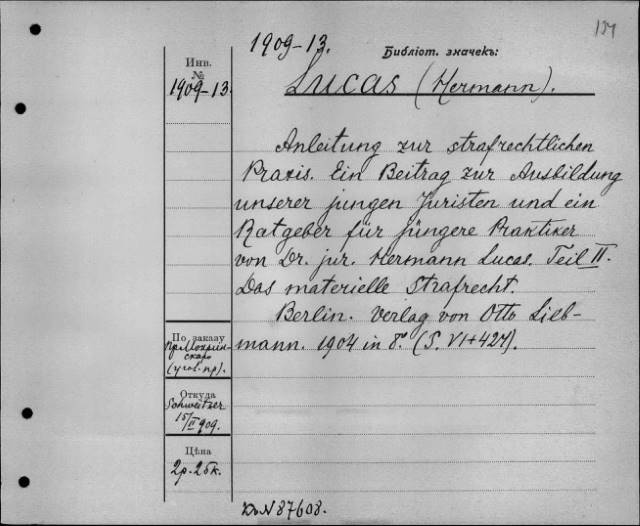 1909-13.
Библіот. значекъ:
Инв.
№
1909-13.
Lucas (Hermann).
Anleitung zur strafrechtlichen
Praxis. Ein Beitrag zur Ausbildung
unserer jungen Juristen und ein
Ratgeber für jüngere Praktiker
von Dr. jur. Hermann Lucas. Teil II.
Das materielle Strafrecht.
Berlin. Verlag von Otto Lieb-
mann. 1904 in 8°. (S. VI+427).
По заказу
(угол. пр).
Откуда
Schweitzer
15/II 909.
Цѣна
2р. 25к.
№ 87608.